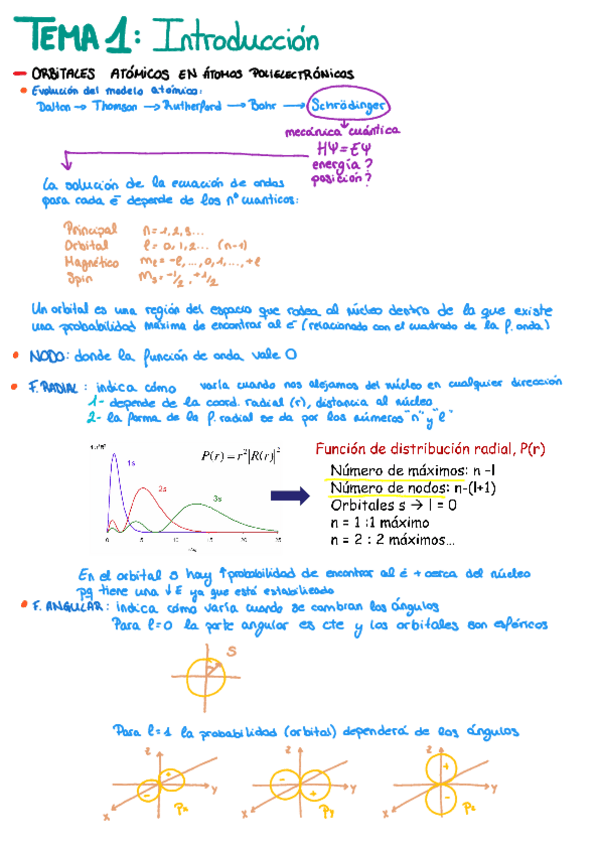 TEMA 1: Introducción
- ORBITALES ATÓMICOS EN ÁTOMOS POLIELECTRÓNICOS
• Evolución del modelo atómico:
Dalton → Thomson → Rutherford → Bohr → Schrödinger
mecánica cuántica
HΨ = EΨ
energía?
posición?
La solución de la ecuación de ondas
para cada e⁻ depende de los nº cuánticos:
Principal n = 1, 2, 3...
Orbital l = 0, 1, 2... (n-1)
Magnético mₗ = -l, ..., 0, 1, ..., +l
Spin mₛ = -1/2, +1/2
Un orbital es una región del espacio que rodea al núcleo dentro de la que existe
una probabilidad máxima de encontrar al e⁻ (relacionado con el cuadrado de la f. onda)
• NODO: donde la función de onda vale 0
• F. RADIAL: indica cómo varía cuando nos alejamos del núcleo en cualquier dirección
1- depende de la coord. radial (r), distancia al núcleo
2- la forma de la f. radial se da por los números "n" y "l"
P(r) = r²|R(r)|²
1s
2s
3s
0 5 10 15 20 25
Función de distribución radial, P(r)
Número de máximos: n -l
Número de nodos: n-(l+1)
Orbitales s → l = 0
n = 1 :1 máximo
n = 2 : 2 máximos...
En el orbital s hay ↑probabilidad de encontrar al e⁻ + cerca del núcleo
pq tiene una ↓E ya que está estabilizado
• F. ANGULAR: indica cómo varía cuando se cambian los ángulos
Para l=0 la parte angular es cte y los orbitales son esféricos
S
Para l=1 la probabilidad (orbital) dependerá de los ángulos
z z z
+ - +
- + -
y y y
x x x
Px Py Pz